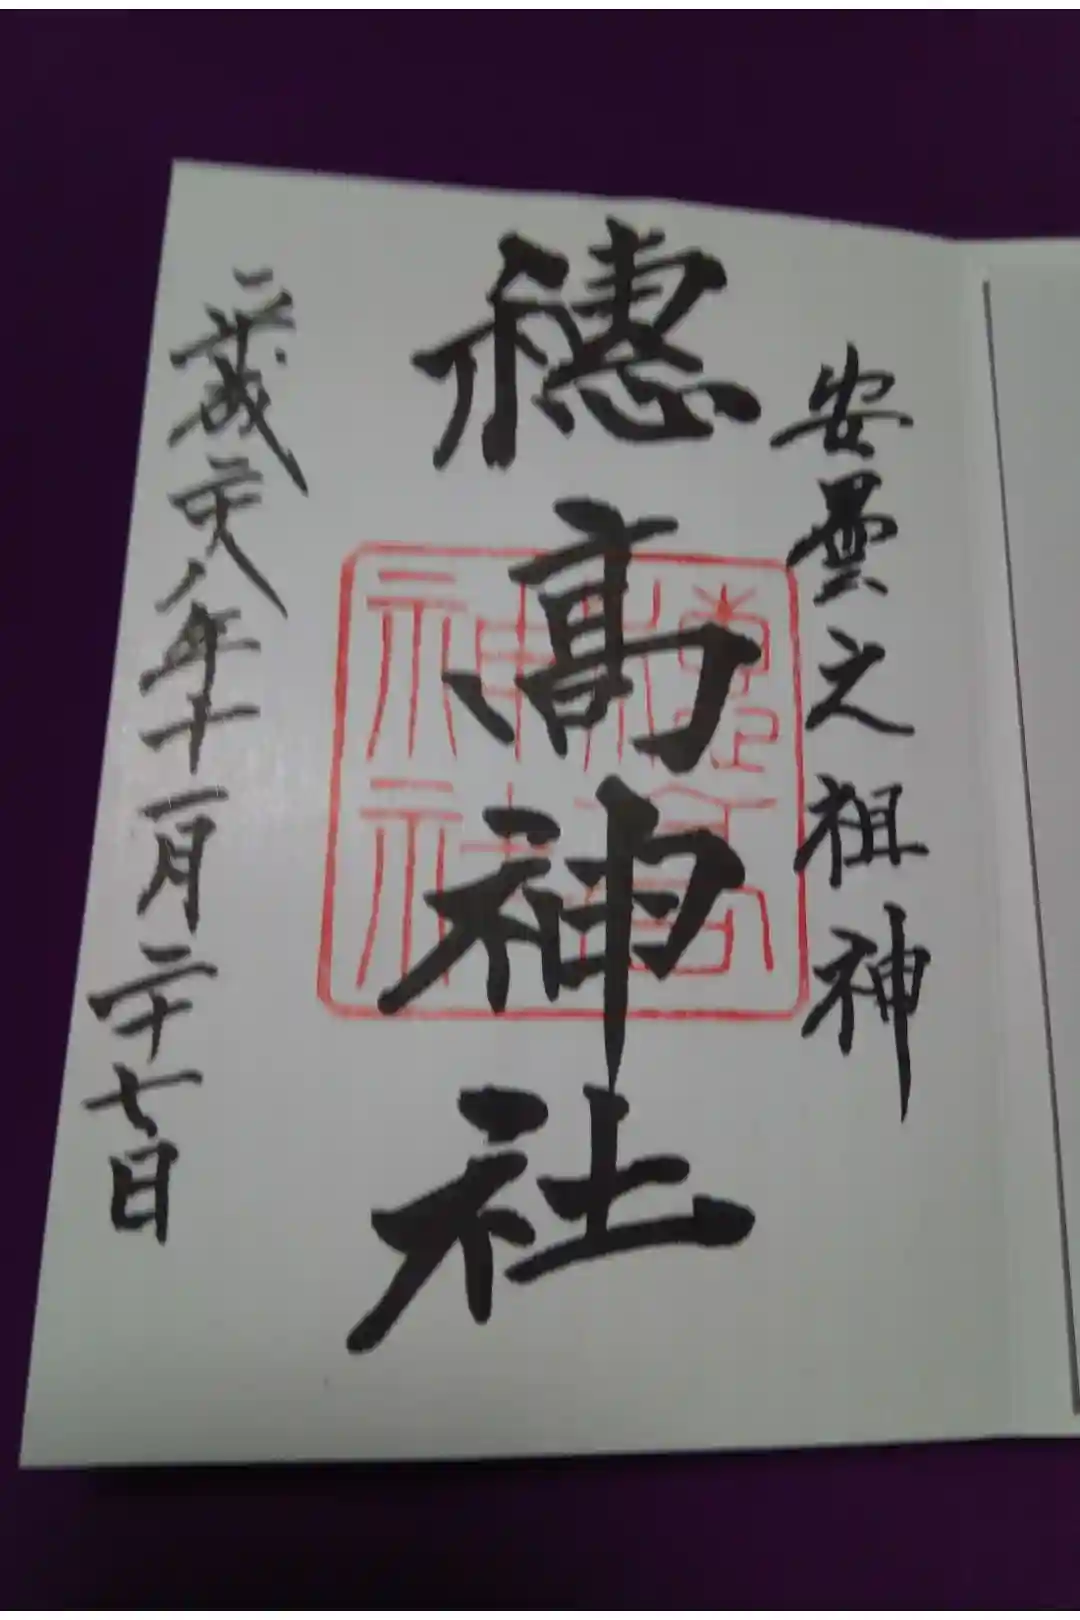 安曇之祖神
穂高神社
平成二十八年十一月二十七日
穂高神社